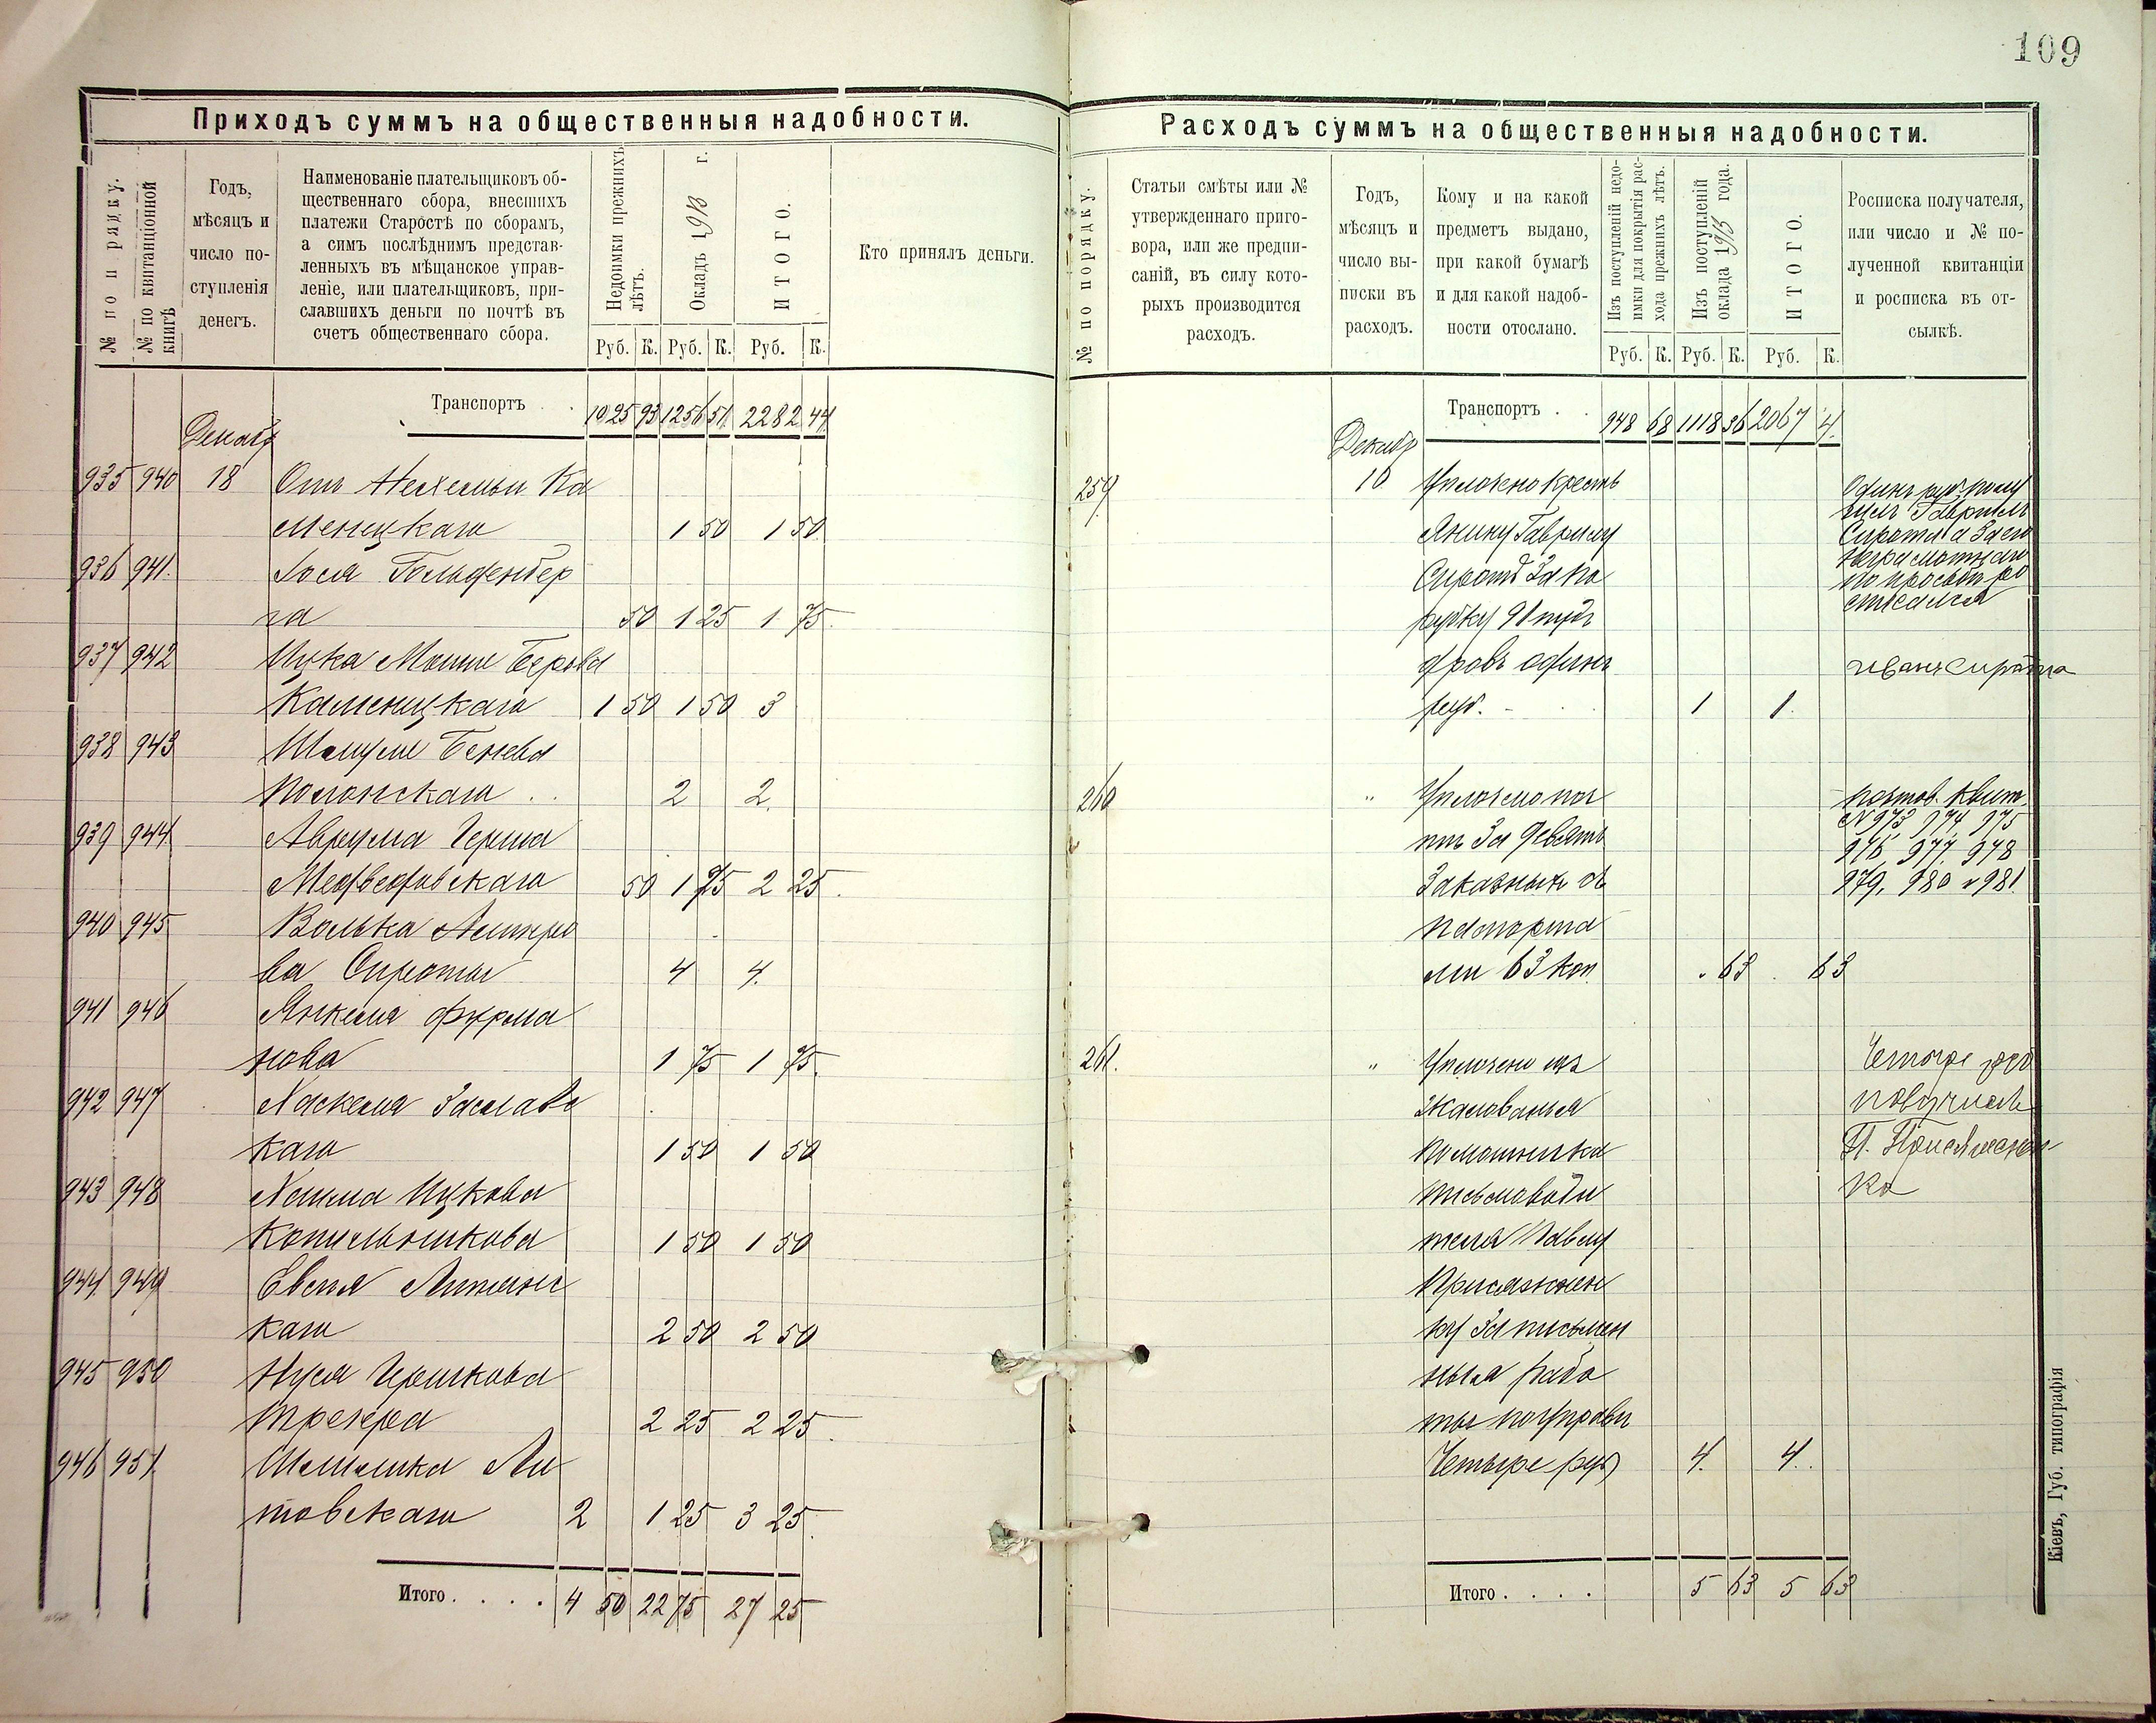 109
Приходъ суммъ на общественныя надобности.
№ по порядку.
№ по квитанціонной книгѣ
Годъ,
мѣсяцъ и
число по-
ступленія
денегъ.
Наименованіе плательщиковъ об-
щественнаго сбора, внесшихъ
платежи Старостѣ по сборамъ,
а симъ послѣднимъ представ-
ленныхъ въ мѣщанское управ-
леніе, или плательщиковъ, при-
славшихъ деньги по почтѣ въ
счетъ общественнаго сбора.
Недоимки прежнихъ
лѣтъ.
Окладъ 1913 г.
ИТОГО.
Кто принялъ деньги.
Руб. К. Руб. К. Руб. К.
Транспортъ . . 1025 93 1256 51 2282 44
Декабр
935 940 18 Отъ Нехемьи Ка
меницкаго 1 50 1 50
936 941. Іося Гольденбер
га 50 1 25 1 75.
937 942 Ицка Мошко Беркова
Каменицкаго 1 50 1 50 3
938 943 Шмуля Бенева
Полонскаго . . 2 2.
939 944 Аврума Герша
Медведовскаго 50 1 75 2 25.
940 945 Волька
ва Сироты 4 4.
941 946 Янкеля Фурма
нова 1 75 1 75.
942 947 Хаскеля Заславс
каго 1 50 1 50
943 948 Хаима Ицкова
Копильникова 1 50 1 50
944 949 Евсея Липянс
каго 2 50 2 50
945 950 Нуся Гершкова
Трегера 2 25 2 25.
946 951. Шлиомка Ли
товскаго 2 1 25 3 25.
Итого . . . . 4 50 22 75 27 25
Расходъ суммъ на общественныя надобности.
№ по порядку.
Статьи смѣты или №
утвержденнаго приго-
вора, или же предпи-
саній, въ силу кото-
рыхъ производится
расходъ.
Годъ,
мѣсяцъ и
число вы-
писки въ
расходъ.
Кому и на какой
предметъ выдано,
при какой бумагѣ
и для какой надоб-
ности отослано.
Изъ поступленій недо-
имки для покрытія рас-
хода прежнихъ лѣтъ.
Изъ поступленій
оклада 1913 года.
ИТОГО.
Росписка получателя,
или число и № по-
лученной квитанціи
и росписка въ от-
сылкѣ.
Руб. К. Руб. К. Руб. К.
Транспортъ . . 948 68 1118 36 2067 4.
Декабр
259 10 Уплочено кресть
янину Гаврилу
Сиротѣ за по
рубку 91 пуд.
дровъ одинъ
руб. - 1 1.
Одинъ руб. полу
чилъ Гаврилъ
Сирота а за его
неграмотнаго
по просьбѣ ро
списался
Иванъ Сирота
260 " Уплочено поч
тѣ за девять
заказныхъ съ
паспорта
ми 63 коп. . 63 . 63
почтов. квит.
№ 973, 974, 975
976, 977, 978
979, 980 и 981.
261. " Уплочено изъ
жалованья
помощника
письмоводи
теля Павлу
Присяжнен
ку за письмен
ныя рабо
ты по управл
Четыре руб 4. 4.
Четыре руб
получилъ
П. Присяжнен-
ко
Итого . . . . 5 63 5 63
Кіевъ, Губ. типографія